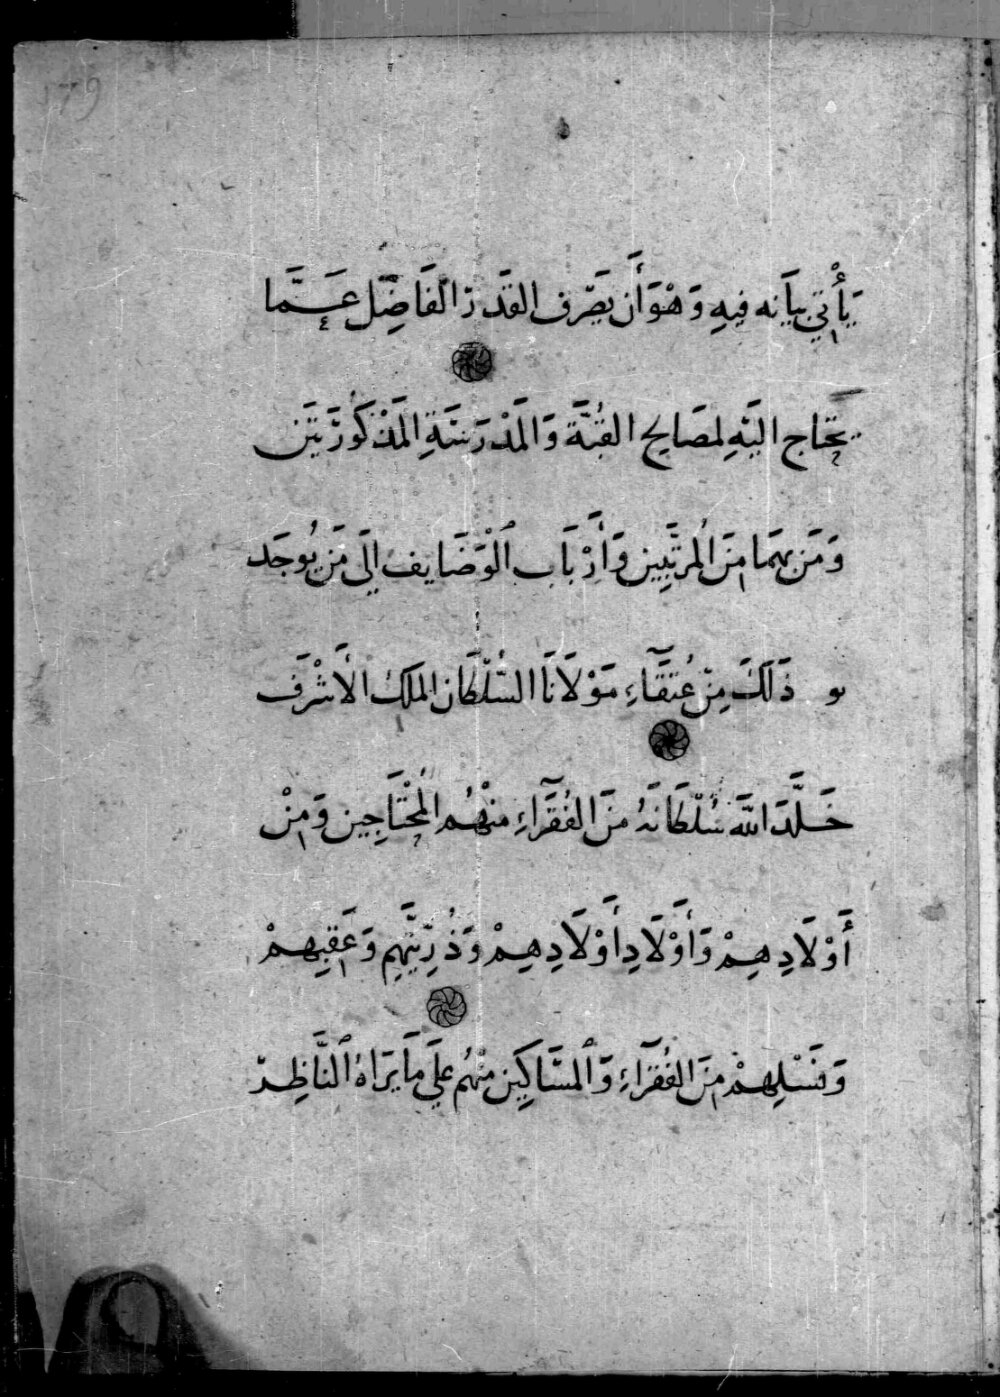 179
يَأْتِي بيَانه فيهِ وَهْوَ أَن يصَرف القَدر الفَاضِل عَمَّا
يحتَاج اليَهِ لمصَالِح القُبَّة وَالمَدْرَسَةِ المَذْكُورَتَين
وَمَن بهمَا مِنَ المُرتَّبِين وَأَرْبَاب الْوَضَايف الَى مَن يُوجَد
ذَلكَ مِن عُتَقَآءِ مَوْلَانَا السُّلْطَان الملَك الأَشْرَف
خَلَّدَ اللَّه سُلْطَانَهُ مِنَ الفُقَرَآءِ منْهُم المُحْتَاجِين وَمِنْ
أَوْلَادِهِمْ وَأَوْلَادِ أَوْلَادِهِمْ وَذُرِّيَّتِهِم وَعَقِبِهِمْ
وَنَسْلِهِمْ مِنَ الفُقرَآءِ وَالْمسَاكِين مِنْهُم عَلَى مَا يرَاهُ النَّاظِر